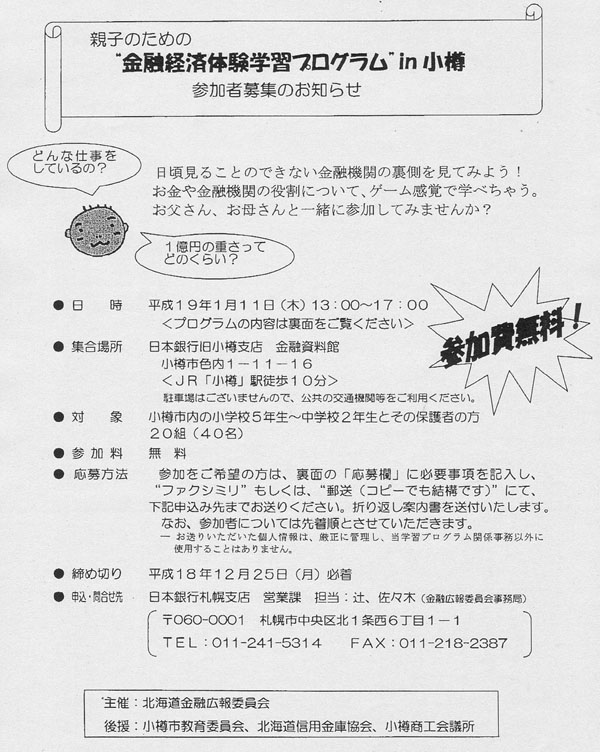 親子のための
“金融経済体験学習プログラム” in 小樽
参加者募集のお知らせ
どんな仕事を
しているの？
日頃見ることのできない金融機関の裏側を見てみよう！
お金や金融機関の役割について、ゲーム感覚で学べちゃう。
お父さん、お母さんと一緒に参加してみませんか？
１億円の重さって
どのくらい？
参加費無料！
● 日　時　平成１９年１月１１日（木）１３：００～１７：００
＜プログラムの内容は裏面をご覧ください＞
● 集合場所　日本銀行旧小樽支店　金融資料館
小樽市色内１－１１－１６
＜ＪＲ「小樽」駅徒歩１０分＞
駐車場はございませんので、公共の交通機関等をご利用ください。
● 対　象　小樽市内の小学校５年生～中学校２年生とその保護者の方
２０組（４０名）
● 参 加 料　無　料
● 応募方法　参加をご希望の方は、裏面の「応募欄」に必要事項を記入し、
“ファクシミリ”もしくは、“郵送（コピーでも結構です）”にて、
下記申込み先までお送りください。折り返し案内書を送付いたします。
なお、参加者については先着順とさせていただきます。
― お送りいただいた個人情報は、厳正に管理し、当学習プログラム関係事務以外に
使用することはありません。
● 締め切り　平成１８年１２月２５日（月）必着
● 申込・問合せ先　日本銀行札幌支店　営業課　担当：辻、佐々木（金融広報委員会事務局）
〒０６０－０００１　札幌市中央区北１条西６丁目１－１
ＴＥＬ：０１１－２４１－５３１４　ＦＡＸ：０１１－２１８－２３８７
主催：北海道金融広報委員会
後援：小樽市教育委員会、北海道信用金庫協会、小樽商工会議所